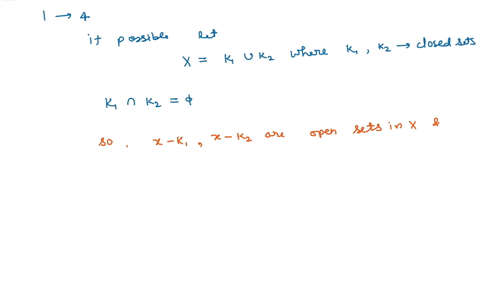 1 → 4
if possible let
X = K₁ ∪ K₂ where K₁, K₂ → closed sets
K₁ ∩ K₂ = ϕ
so, X-K₁, X-K₂ are open sets in X &